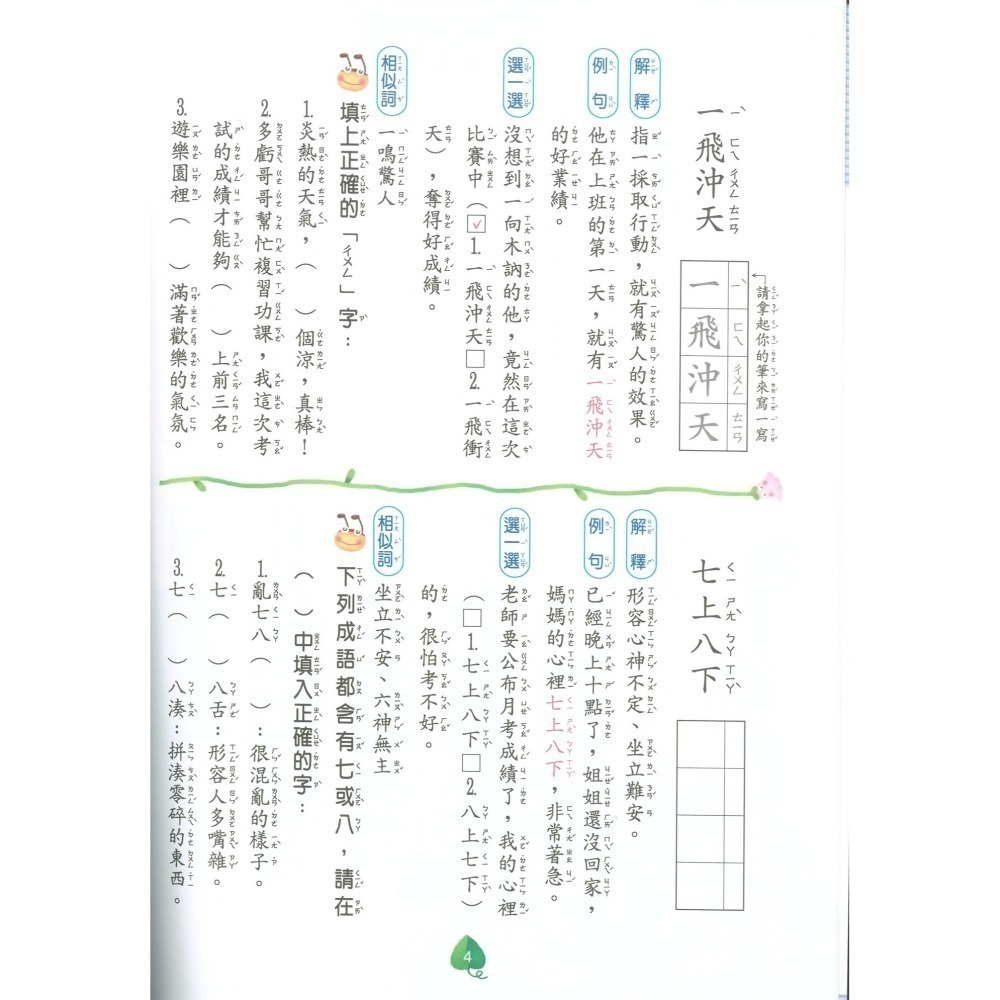 一飛沖天
請拿起你的筆來寫一寫
一飛沖天
解釋
指一採取行動，就有驚人的效果。
例句
他在上班的第一天，就有一飛沖天
的好業績。
選一選
沒想到一向木訥的他，竟然在這次
比賽中（☑1.一飛沖天□2.一飛衝
天），奪得好成績。
相似詞
一鳴驚人
填上正確的「ㄔㄨㄥ」字：
1.炎熱的天氣，（　）個涼，真棒！
2.多虧哥哥幫忙複習功課，我這次考
試的成績才能夠（　）上前三名。
3.遊樂園裡（　）滿著歡樂的氣氛。
七上八下
解釋
形容心神不定、坐立難安。
例句
已經晚上十點了，姐姐還沒回家，
媽媽的心裡七上八下，非常著急。
選一選
老師要公布月考成績了，我的心裡
（□1.七上八下□2.八上七下）
的，很怕考不好。
相似詞
坐立不安、六神無主
下列成語都含有七或八，請在
（　）中填入正確的字：
1.亂七八（　）：很混亂的樣子。
2.七（　）八舌：形容人多嘴雜。
3.七（　）八湊：拼湊零碎的東西。
4